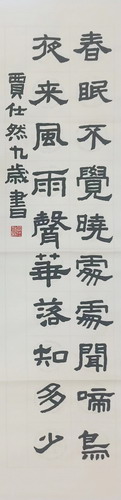 春眠不覺曉處處聞啼鳥
夜来風雨聲華落知多少
賈仕然九歲書